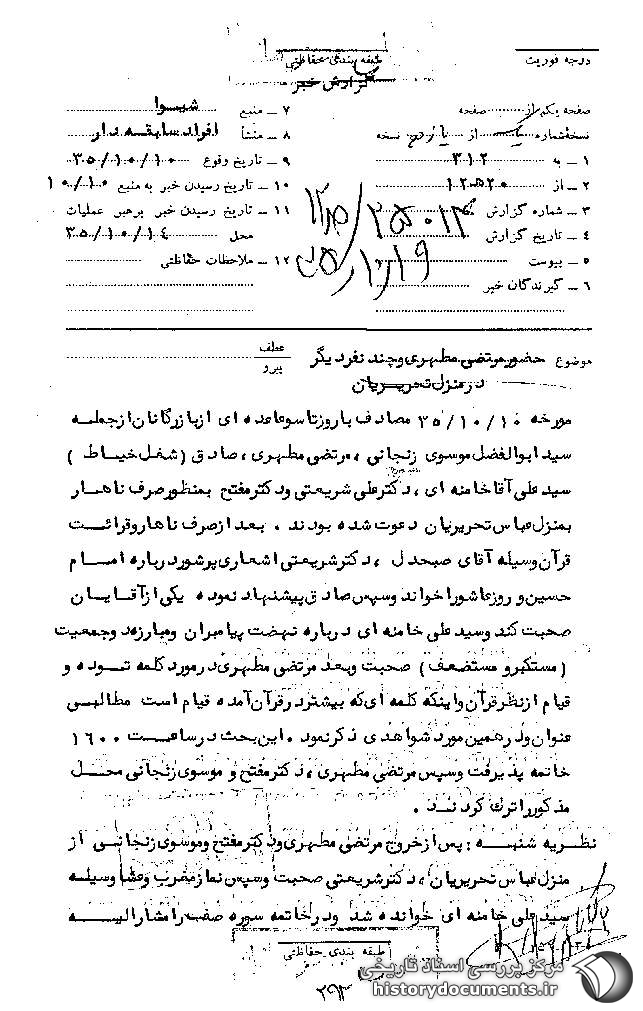 درجه فوریت
طبقه بندی حفاظتی
گزارش خبر
صفحه یکم از صفحه
نسخه شماره از نسخه
۱ ـ به ۳۱۲
۲ ـ از ۱۲ ﻫ ۲۰
۳ ـ شماره گزارش
۴ ـ تاریخ گزارش
۵ ـ پیوست
۶ ـ گیرندگان خبر
۷ ـ منبع شیوا
۸ ـ منشأ افراد سابقه دار
۹ ـ تاریخ وقوع ۳۵/۱۰/۱۰
۱۰ ـ تاریخ رسیدن خبر به منبع ۱۰/۱۰
۱۱ ـ تاریخ رسیدن خبر برهبر عملیات
محل ۳۵/۱۰/۱۴
۱۲ ـ ملاحظات حفاظتی
موضوع حضور مرتضی مطهری و چند نفر دیگر
در منزل تحریریان
عطف
پیرو
مورخه ۳۵/۱۰/۱۰ مصادف با روز تاسوعا عده ای از بازرگانان از جمله
سید ابوالفضل موسوی زنجانی ، مرتضی مطهری ، صادق (شغل خیاط )
سید علی آقا خامنه ای ، دکتر علی شریعتی و دکتر مفتح بمنظور صرف ناهار
بمنزل عباس تحریریان دعوت شده بودند . بعد از صرف ناهار و قرائت
قرآن وسیله آقای صبحدل ، دکتر شریعتی اشعاری پرشور درباره امام
حسین و روز عاشورا خواند وسپس صادق پیشنهاد نموده یکی از آقایان
صحبت کند و سید علی خامنه ای درباره نهضت پیامبران و مبارزه دو جمعیت
(مستکبر و مستضعف ) صحبت و بعد مرتضی مطهری در مورد کلمه توده و
قیام از نظر قرآن و اینکه کلمه ای که بیشتر در قرآن آمده قیام است مطالبی
عنوان و در همین مورد شواهدی ذکر نمود . این بحث در ساعت ۱۶۰۰
خاتمه پذیرفت و سپس مرتضی مطهری ، دکتر مفتح و موسوی زنجانی محل
مذکور را ترک کردند .
نظریه شنبه : پس از خروج مرتضی مطهری و دکتر مفتح و موسوی زنجانی از
منزل عباس تحریریان ، دکتر شریعتی صحبت و سپس نماز مغرب و عشا وسیله
سید علی خامنه ای خوانده شد و در خاتمه سوره صف را مشارالیه
طبقه بندی حفاظتی
۲۹۳
مرکز بررسی اسناد تاریخی
historydocuments.ir